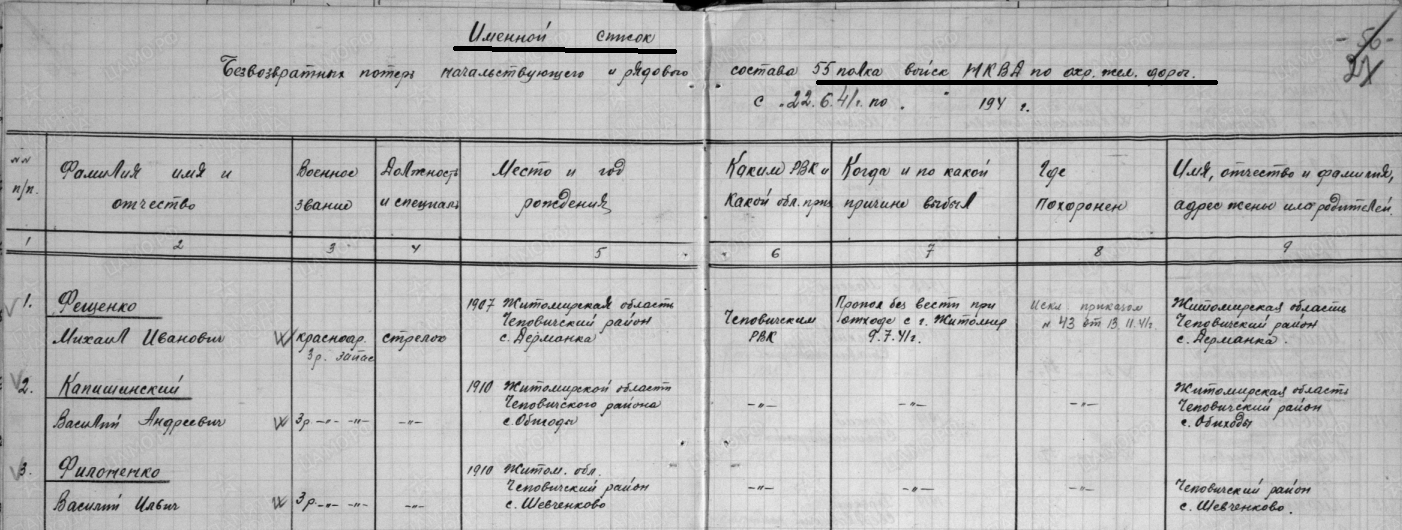 Именной список
Безвозвратных потерь начальствующего и рядового состава 55 полка войск НКВД по охр. жел. дорог.
с "22.6.41г. по " " 194 г.
№№ п/п.
Фамилия имя и отчество
Военное звание
Должность и специаль
Место и год рождения
Каким РВК и какой обл. приз
Когда и по какой причине выбыл
Где похоронен
Имя, отчество и фамилия, адрес жены или родителей.
1 2 3 4 5 6 7 8 9
1.
Фещенко
Михаил Иванович
красноар.
3р. запас
стрелок
1907 Житомирская область
Чеповичский район
с. Дерманка
Чеповичским
РВК
Пропал без вести при
отходе с г. Житомир
9.7.41г.
Искл приказом
№ 43 от 13.11.41г.
Житомирская область
Чеповичский район
с. Дерманка.
2.
Капишинский
Василий Андреевич
3р. -"- -"-
-"-
1910 Житомирской области
Чеповичского района
с. Обиходы
-"-
-"-
-"-
Житомирская область
Чеповичский район
с. Обиходы
3.
Филоненко
Василий Ильич
3р. -"- -"-
-"-
1910 Житом. обл.
Чеповичский район
с. Шевченково
-"-
-"-
-"-
Чеповичский район
с. Шевченково.